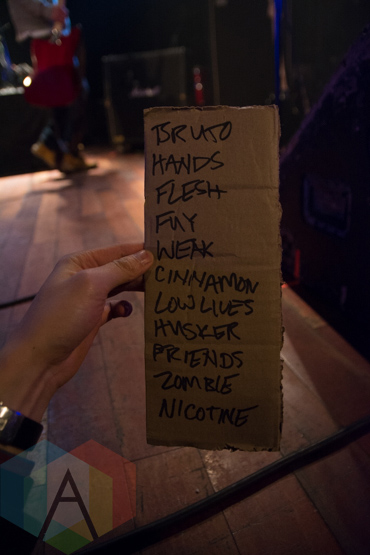 BRUTO
HANDS
FLESH
FNY
WEAK
CINNAMON
LOWLIVES
HUSKER
FRIENDS
ZOMBIE
NICOTINE
A